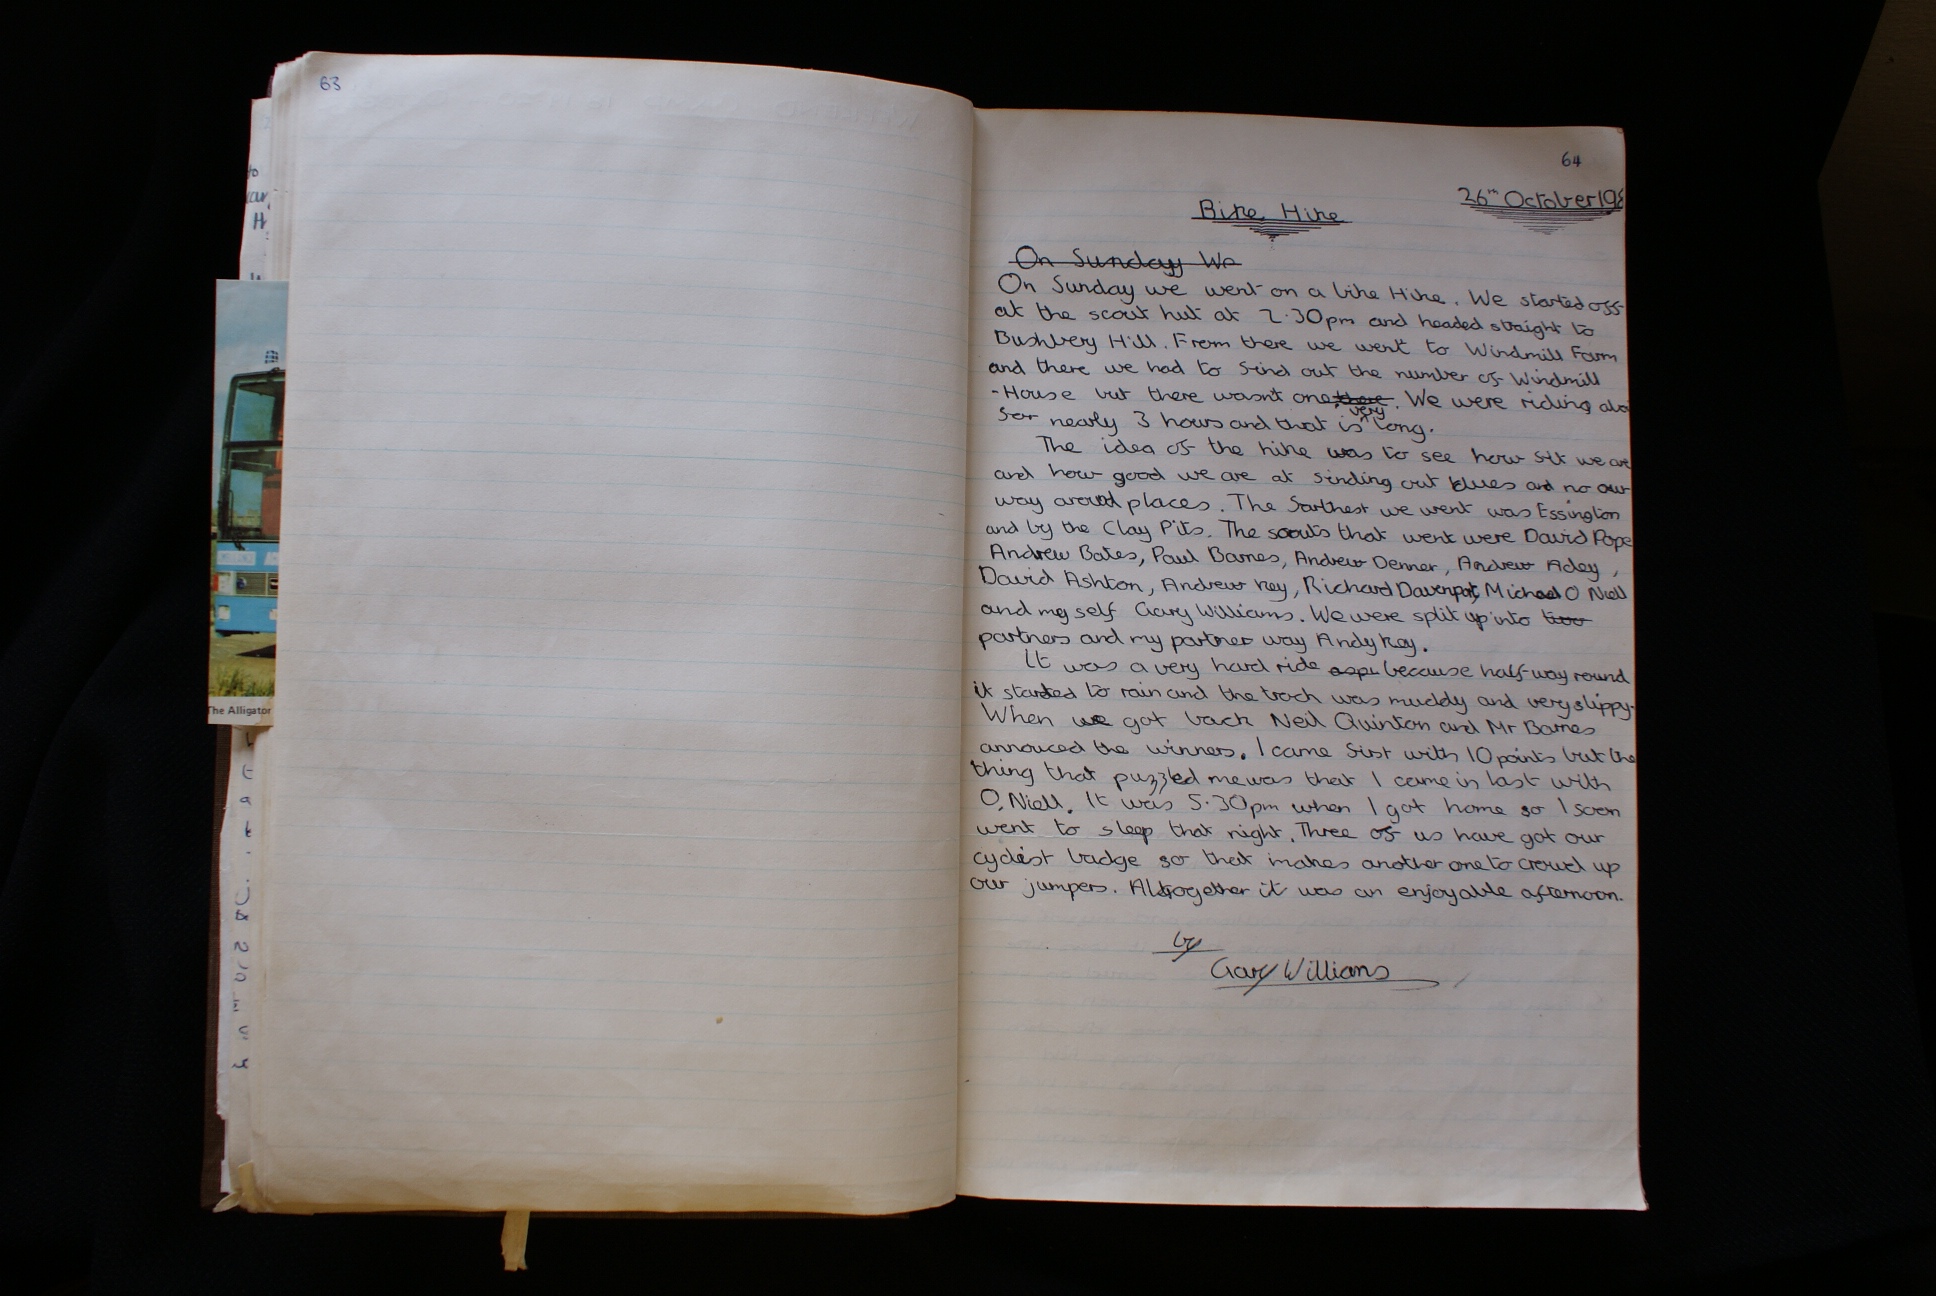 63
64
26th October 198
Bike Hike
On Sunday We
On Sunday we went on a bike Hike. We started off
at the scout hut at 2.30pm and headed straight to
Bushbery Hill. From there we went to Windmill Farm
and there we had to find out the number of Windmill
-House but there wasn't one there. We were riding
for nearly 3 hours and that is very long.
The idea of the hike was to see how fit we are
and how good we are at finding out klues and no our
way around places. The farthest we went was Essington
and by the Clay Pits. The scouts that went were David Pope
Andrew Bates, Paul Barnes, Andrew Denner, Andrew Adey,
David Ashton, Andrew Key, Richard Davenport, Michael O Niell
and my self Gary Williams. We were split up into two
partners and my partner way Andy Key.
It was a very hard ride because half-way round
it started to rain and the track was muddy and very slippy.
When we got back Neil Quinton and Mr Barnes
annouced the winners. I came first with 10 points but the
thing that puzzled me was that I came in last with
O, Niell. It was 5.30pm when I got home so I soon
went to sleep that night. Three of us have got our
cyclist badge so that makes another one to crowd up
our jumpers. Altogether it was an enjoyable afternoon.
by
Gary Williams
The Alligator